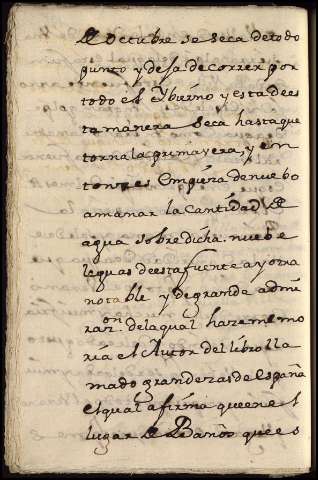 de octubre se seca detodo
punto y deja de correr por
todo el Ybierno y esta dees
ta manera seca hastaque
torna la primavera, y en
tonzes empieza de nuebo
amanar la cantidad de
agua sobre dicha. nuebe
leguas deesta fuente ay otra
notable y de grande admi
razon. dela qual haze memo
ria el Autor del libro lla
mado grandezas de España
el qual afirma que en el
lugar de Baños que es